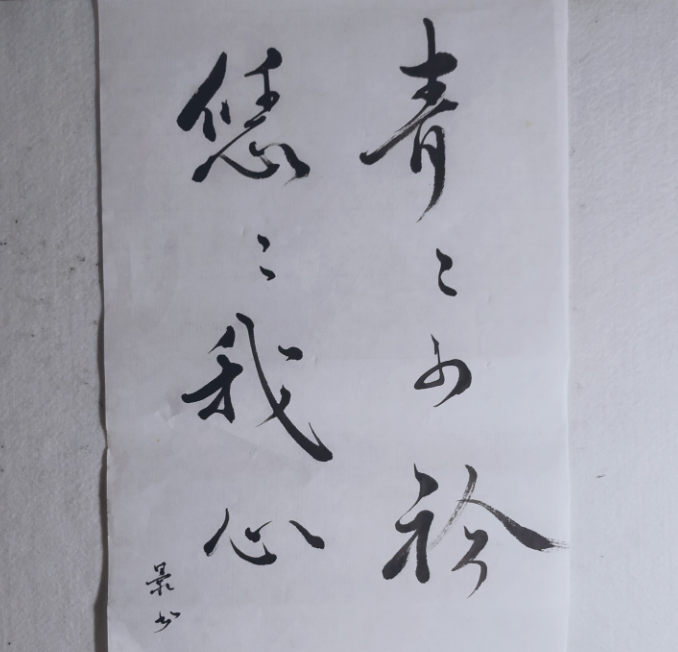 青々子衿
悠々我心
景书